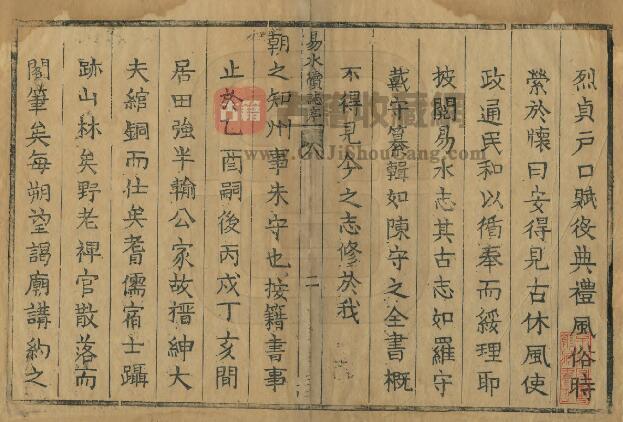 烈貞戶口賦役典禮風俗時
縈於懷曰安得見古休風使
政通民和以循奉而綏理耶
披閱易水志其古志如羅守
戴守纂輯如陳守之全書概
不得見今之志修於我
易水續誌序
二
朝之知州事朱守也按籍書事
止於乙酉嗣後丙戌丁亥間
居田強半輸公家故搢紳大
夫綰銅而仕矣耆儒宿士躡
跡山林矣野老稗官散落而
閣筆矣每朔望謁廟講約之
古籍收藏網
www.GuJiShouCang.com